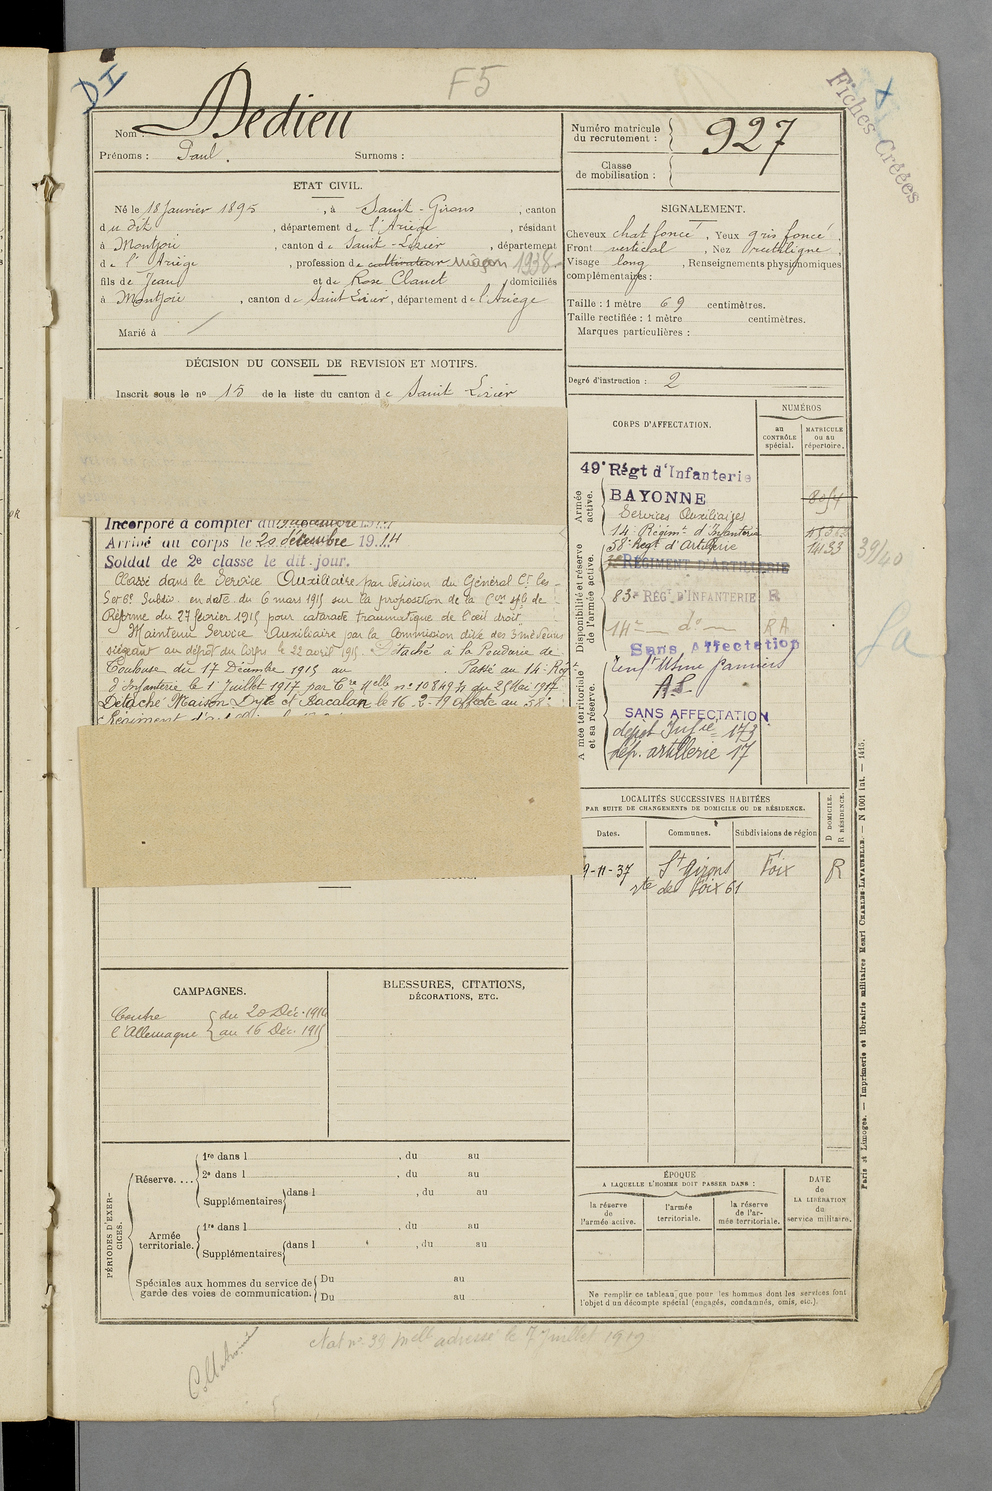 DI
F5
Fiches Créées
Nom : Dedieu
Prénoms : Paul. Surnoms :
Numéro matricule du recrutement : 927
Classe de mobilisation :
ETAT CIVIL.
Né le 18 Janvier 1895, à Saint-Girons, canton
du dit, département de l'Ariège, résidant
à Montjoie, canton de Saint-Lizier, département
de l'Ariège, profession de cultivateur maçon 1938
fils de Jean et de Rose Clanet, domiciliés
à Montjoie, canton de Saint Lizier, département de l'Ariège
Marié à
SIGNALEMENT.
Cheveux chat foncé, Yeux gris foncé
Front vertical, Nez rectiligne
Visage long, Renseignements physionomiques
complémentaires :
Taille : 1 mètre 69 centimètres.
Taille rectifiée : 1 mètre centimètres.
Marques particulières :
Degré d'instruction : 2
DÉCISION DU CONSEIL DE REVISION ET MOTIFS.
Inscrit sous le no 15 de la liste du canton de Saint Lizier
Incorporé à compter du
Arrivé au corps le 20 décembre 1914
Soldat de 2e classe le dit jour.
Classé dans le Service Auxiliaire par décision du Général Ct les
Set 6e Subdiv. en date du 6 mars 1915 sur la proposition de la Con sple de
Réforme du 27 février 1915 pour cataracte traumatique de l'œil droit
Maintenu Service Auxiliaire par la Commission dite des 3 médecins
siégeant au dépôt du Corps le 22 avril 1915. Détaché à la Poudrerie de
Toulouse du 17 Décembre 1915 au Passé au 14e Rég
d'Infanterie le 1er Juillet 1917 par Cre Melle no 10849 du 25 Mai 1917
Détaché Maison Dyle et Bacalan le 16-2-19 affecté au 58e
CORPS D'AFFECTATION.
NUMÉROS
au CONTRÔLE spécial.
MATRICULE ou au répertoire.
Armée active.
49e Régt d'Infanterie
BAYONNE
Services Auxiliaires
14e Régimt d'Infanterie
Disponibilité et réserve de l'armée active.
58e Regt d'Artillerie 14133
RÉGIMENT D'ARTILLERIE
39/40
83e RÉGT D'INFANTERIE R
14e do RA
Sans Affectation
Armée territoriale et sa réserve.
AS
SANS AFFECTATION
dépôt Infie 173
dép. artillerie 17
LOCALITÉS SUCCESSIVES HABITÉES
PAR SUITE DE CHANGEMENTS DE DOMICILE OU DE RÉSIDENCE.
Dates. Communes. Subdivisions de région D DOMICILE. R RÉSIDENCE.
9-11-37 St Girons Foix R
rte de Foix 61
CAMPAGNES.
Contre { du 20 Déc. 1914
l'Allemagne { au 16 Déc. 1915
BLESSURES, CITATIONS,
DÉCORATIONS, ETC.
PÉRIODES D'EXERCICES.
Réserve.... 1re dans l , du au
2e dans l , du au
Supplémentaires dans l , du au
Armée territoriale. 1re dans l , du au
Supplémentaires dans l , du au
Spéciales aux hommes du service de garde des voies de communication. Du au
Du au
ÉPOQUE
A LAQUELLE L'HOMME DOIT PASSER DANS :
la réserve de l'armée active.
l'armée territoriale.
la réserve de l'armée territoriale.
DATE de LA LIBÉRATION du service militaire.
Ne remplir ce tableau que pour les hommes dont les services font
l'objet d'un décompte spécial (engagés, condamnés, omis, etc.).
Paris et Limoges. — Imprimerie et librairie militaires Henri CHARLES-LAVAUZELLE. — N 1001 int. — 1415.
Collationné
Etat no 39 Mell adressé le 7 Juillet 1919